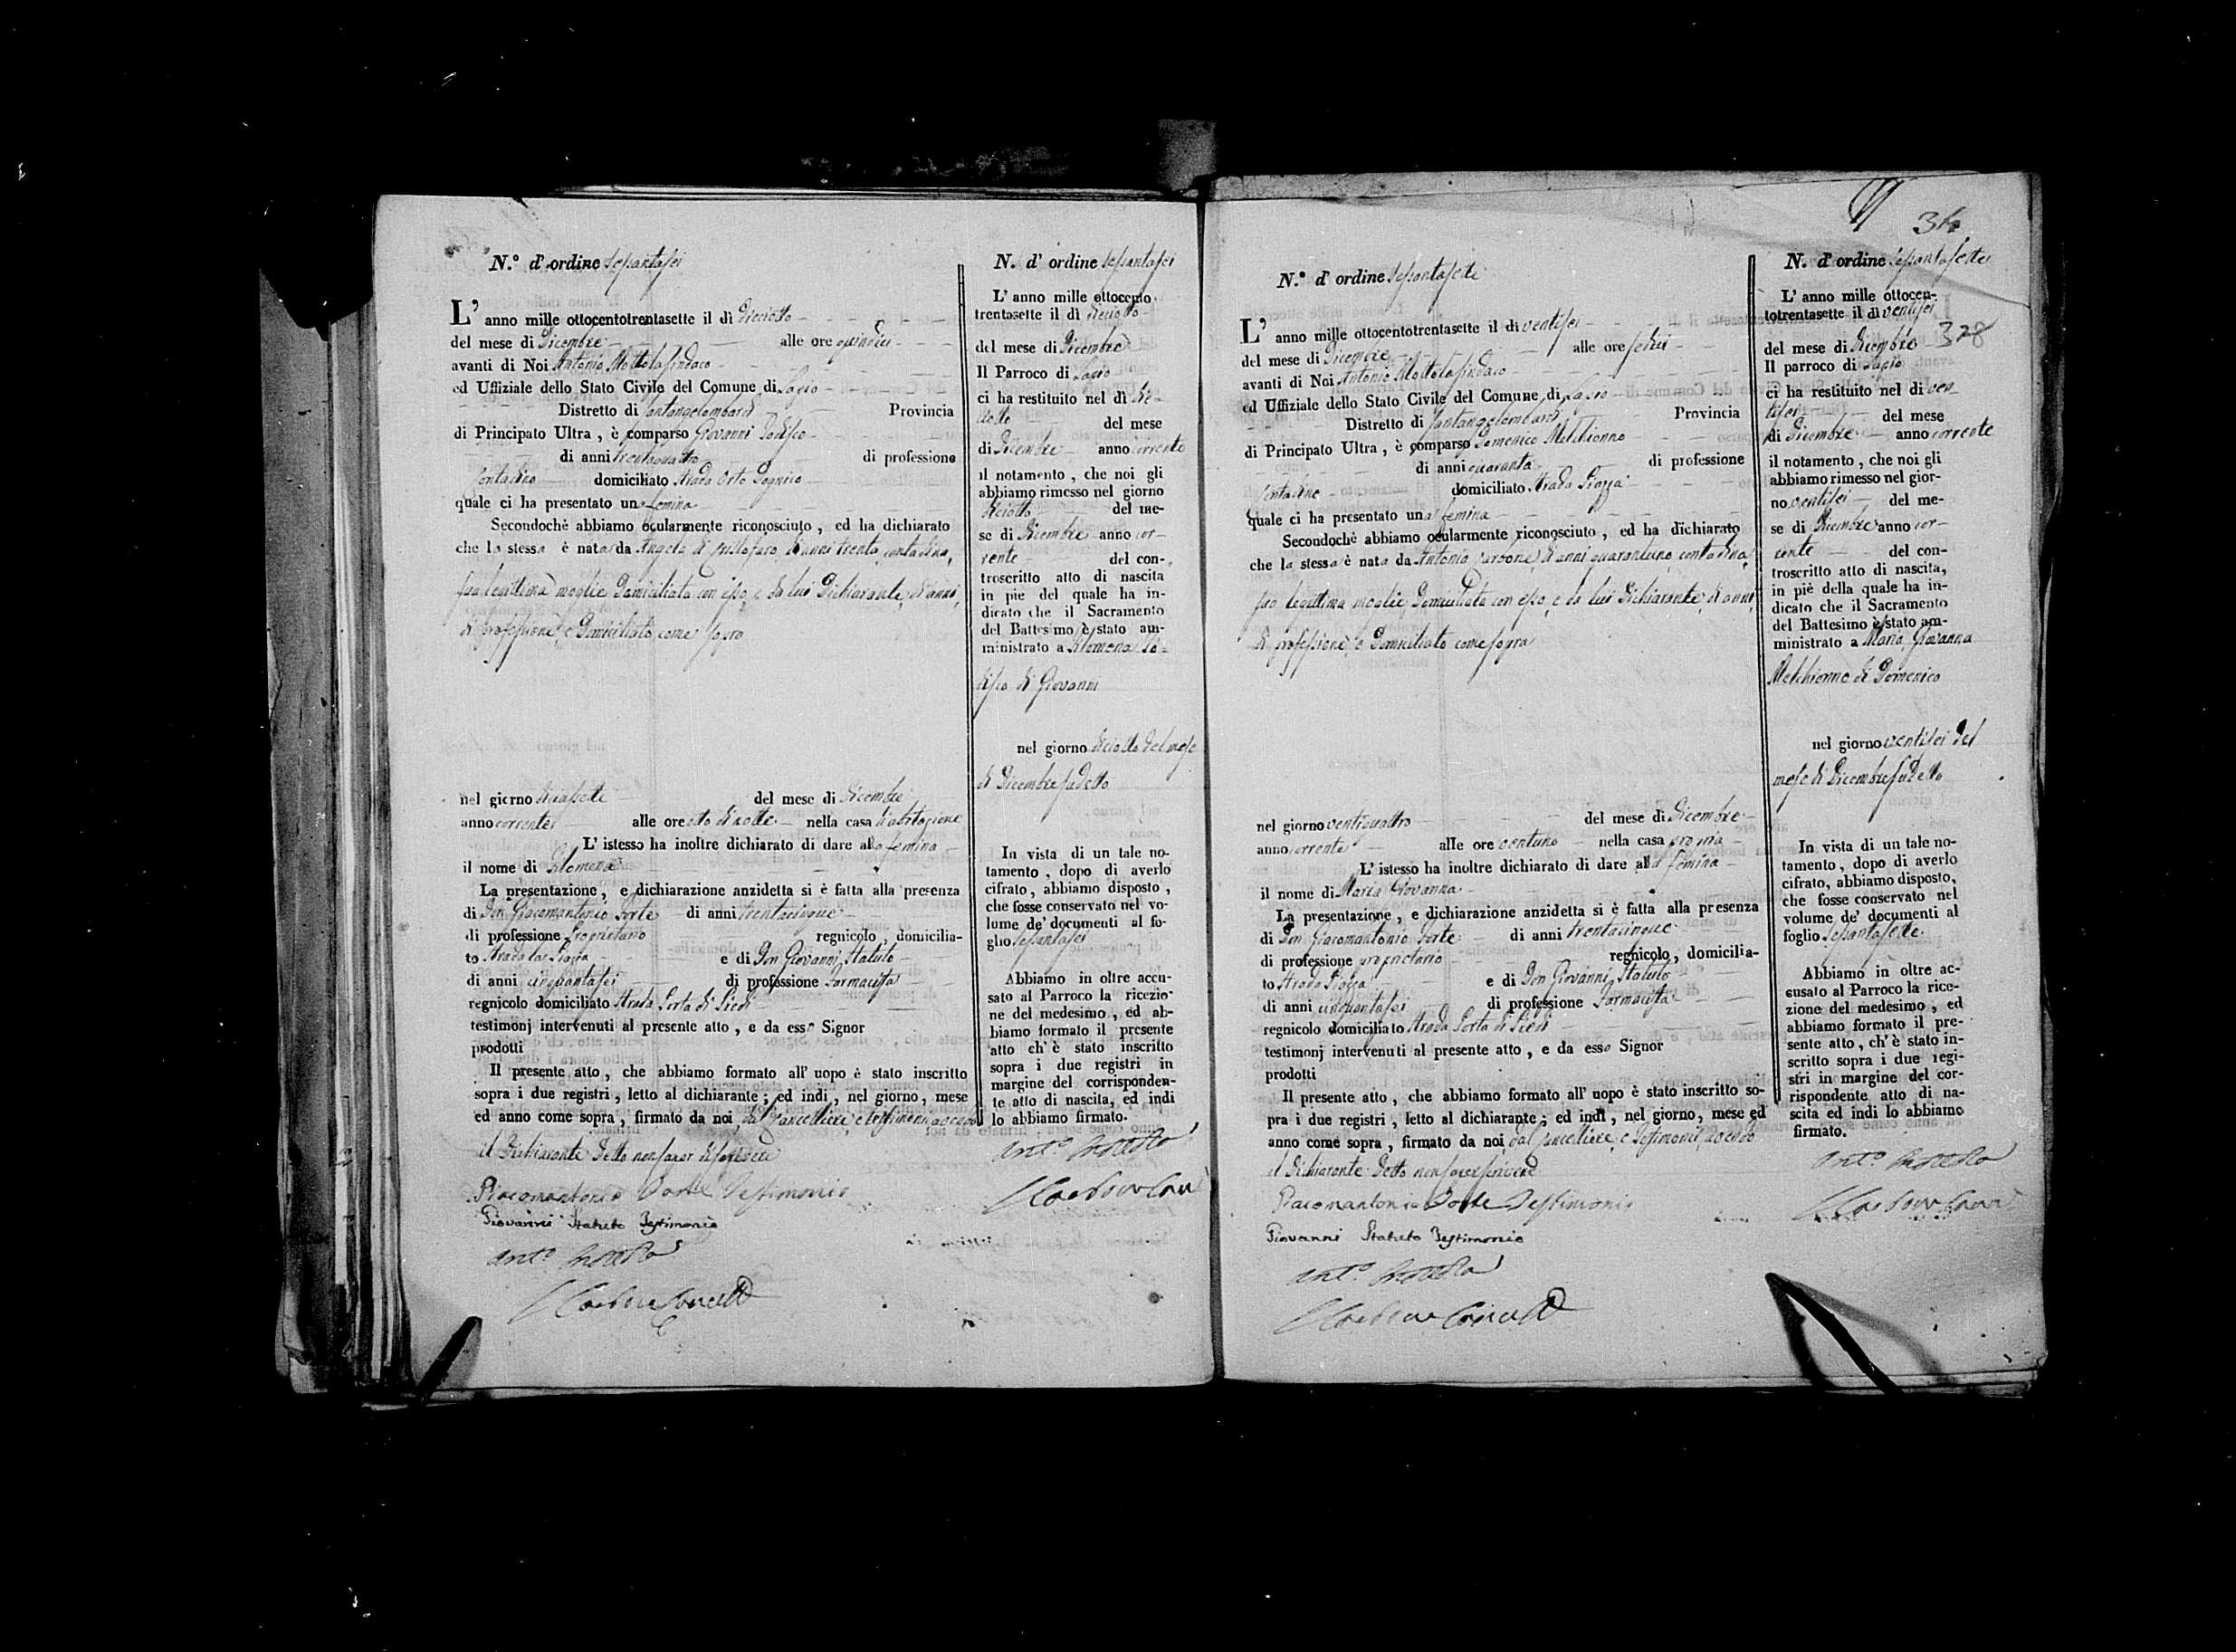 N.° d'ordine Sessantasei
L' anno mille ottocentotrentasette il dì dieciotto
del mese di Dicembre alle ore quindici
avanti di Noi Antonio Mottola Sindaco
ed Uffiziale dello Stato Civile del Comune di Lapio
Distretto di Santangelolombardi Provincia
di Principato Ultra , è comparso Giovanni
di anni trentaquattro di professione
Contadino domiciliato Strada Orto
quale ci ha presentato una femina
Secondochè abbiamo ocularmente riconosciuto , ed ha dichiarato
che la stessa è nata da Angela di anni trenta, contadina,
sua legittima moglie domiciliata con esso, e da lui Dichiarante, di anni,
di professione, e Domiciliato come sopra
nel giorno diciassette del mese di Dicembre
anno corrente alle ore otto di notte nella casa di abitazione
L' istesso ha inoltre dichiarato di dare alla femina
il nome di Filomena
La presentazione , e dichiarazione anzidetta si è fatta alla presenza
di Don Giacomantonio Forte di anni trentacinque
di professione Proprietario regnicolo , domicilia-
to Strada la Piazza e di Don Giovanni Statuto
di anni cinquantasei di professione Farmacista
regnicolo domiciliato Strada Porta di Piedi
testimonj intervenuti al presente atto , e da esso Signor
prodotti
Il presente atto , che abbiamo formato all' uopo è stato inscritto
sopra i due registri , letto al dichiarante ; ed indi , nel giorno , mese
ed anno come sopra , firmato da noi, dal Cancelliere, e testimoni avendo
il Dichiarante detto non saper scrivere
Giacomantonio Forte Testimonio
Giovanni Statuto Testimonio
Ant.° Mottola
N. d' ordine Sessantasei
L' anno mille ottocento-
trentasette il dì dieciotto
del mese di Dicembre
Il Parroco di Lapio
ci ha restituito nel dì die-
ciotto del mese
di Dicembre anno corrente
il notamento , che noi gli
abbiamo rimesso nel giorno
diciotto del me-
se di Dicembre anno cor-
rente del con-
troscritto atto di nascita
in piè del quale ha in-
dicato che il Sacramento
del Battesimo è stato am-
ministrato a Filomena
di Giovanni
nel giorno diciotto del mese
di Dicembre sudetto
In vista di un tale no-
tamento , dopo di averlo
cifrato , abbiamo disposto ,
che fosse conservato nel vo-
lume de' documenti al fo-
glio Sessantasei
Abbiamo in oltre accu-
sato al Parroco la ricezio-
ne del medesimo , ed ab-
biamo formato il presente
atto ch' è stato inscritto
sopra i due registri in
margine del corrisponden-
te atto di nascita, ed indi
lo abbiamo firmato.
Ant.° Mottola
328
N.° d' ordine Sessantasette
L' anno mille ottocentotrentasette il dì ventisei
del mese di Dicembre alle ore sedici
avanti di Noi Antonio Mottola Sindaco
ed Uffiziale dello Stato Civile del Comune di Lapio
Distretto di Santangelolombardi Provincia
di Principato Ultra , è comparso Domenico Melchionno
di anni quaranta di professione
Contadino domiciliato Strada Piazza
quale ci ha presentato una femina
Secondochè abbiamo ocularmente riconosciuto , ed ha dichiarato
che la stessa è nata da Antonia Carbone, di anni quarantuno, contadina,
sua legittima moglie, Domiciliata con esso, e da lui Dichiarante, di anni,
di professione, e Domiciliato come sopra
nel giorno ventiquattro del mese di Dicembre
anno corrente alle ore ventuno nella casa propria
L' istesso ha inoltre dichiarato di dare alla femina
il nome di Maria Giovanna
La presentazione , e dichiarazione anzidetta si è fatta alla presenza
di Don Giacomantonio Forte di anni trentacinque
di professione proprietario regnicolo , domicilia-
to Strada Piazza e di Don Giovanni Statuto
di anni cinquantasei di professione Farmacista
regnicolo domiciliato Strada Porta di Piedi
testimonj intervenuti al presente atto , e da esso Signor
prodotti
Il presente atto , che abbiamo formato all' uopo è stato inscritto so-
pra i due registri , letto al dichiarante ; ed indi , nel giorno , mese ed
anno come sopra , firmato da noi, dal Cancelliere, e testimonj, avendo
il Dichiarante detto non saper scrivere
Giacomantonio Forte Testimonio
Giovanni Statuto Testimonio
Ant.° Mottola
N. d' ordine Sessantasette
L' anno mille ottocen-
totrentasette il dì ventisei
del mese di Dicembre
Il parroco di Lapio
ci ha restituito nel dì ven-
tisei del mese
di Dicembre anno corrente
il notamento , che noi gli
abbiamo rimesso nel gior-
no ventisei del me-
se di Dicembre anno cor-
rente del con-
troscritto atto di nascita,
in piè della quale ha in-
dicato che il Sacramento
del Battesimo è stato am-
ministrato a Maria Giovanna
Melchionno di Domenico
nel giorno ventisei del
mese di Dicembre sudetto
In vista di un tale no-
tamento , dopo di averlo
cifrato, abbiamo disposto,
che fosse conservato nel
volume de' documenti al
foglio Sessantasette
Abbiamo in oltre ac-
cusato al Parroco la rice-
zione del medesimo , ed
abbiamo formato il pre-
sente atto , ch' è stato in-
scritto sopra i due regi-
stri in margine del cor-
rispondente atto di na-
scita ed indi lo abbiamo
firmato.
Ant.° Mottola